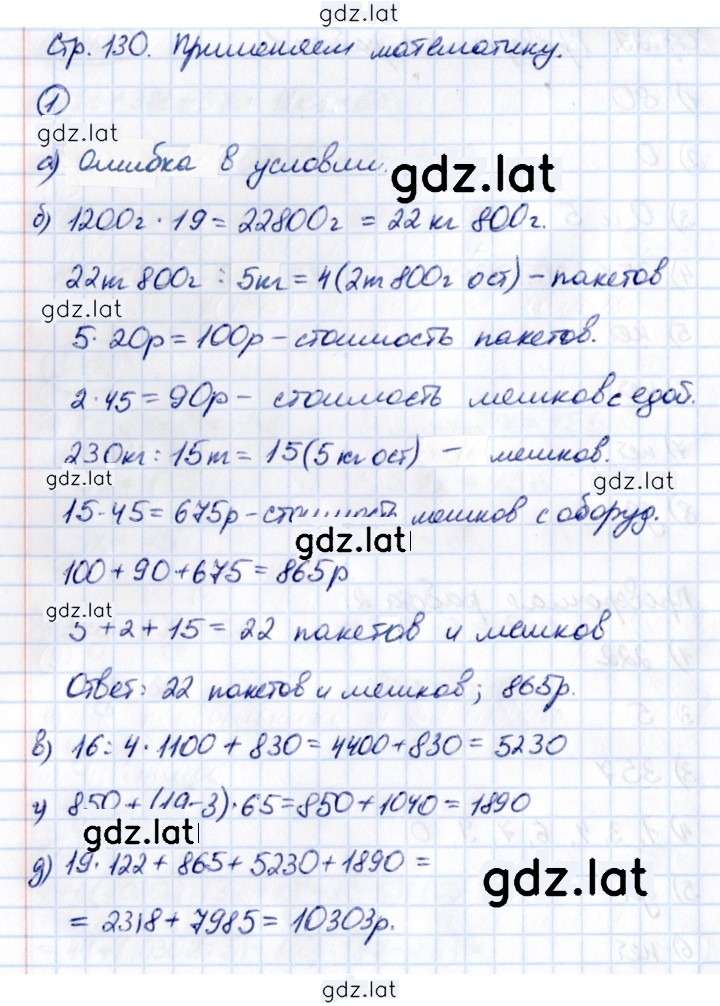 gdz.lat
Стр. 130. Применяем математику.
①
gdz.lat
а) Ошибка в условии.
gdz.lat
б) 1200г · 19 = 22800г = 22 кг 800г.
22кг 800г : 5кг = 4(2кг 800г ост) – пакетов
gdz.lat
5 · 20р = 100р – стоимость пакетов.
2 · 45 = 90р – стоимость мешков с едоб.
230кг : 15кг = 15(5 кг ост) – мешков.
gdz.lat gdz.lat
15 · 45 = 675р – стоимость мешков с оборуд.
gdz.lat
100 + 90 + 675 = 865р
gdz.lat
5 + 2 + 15 = 22 пакетов и мешков
Ответ: 22 пакетов и мешков; 865р.
gdz.lat
в) 16 : 4 · 1100 + 830 = 4400 + 830 = 5230
г) 850 + (19-3) · 65 = 850 + 1040 = 1890
gdz.lat
д) 19 · 122 + 865 + 5230 + 1890 =
gdz.lat
= 2318 + 7985 = 10303р.
gdz.lat